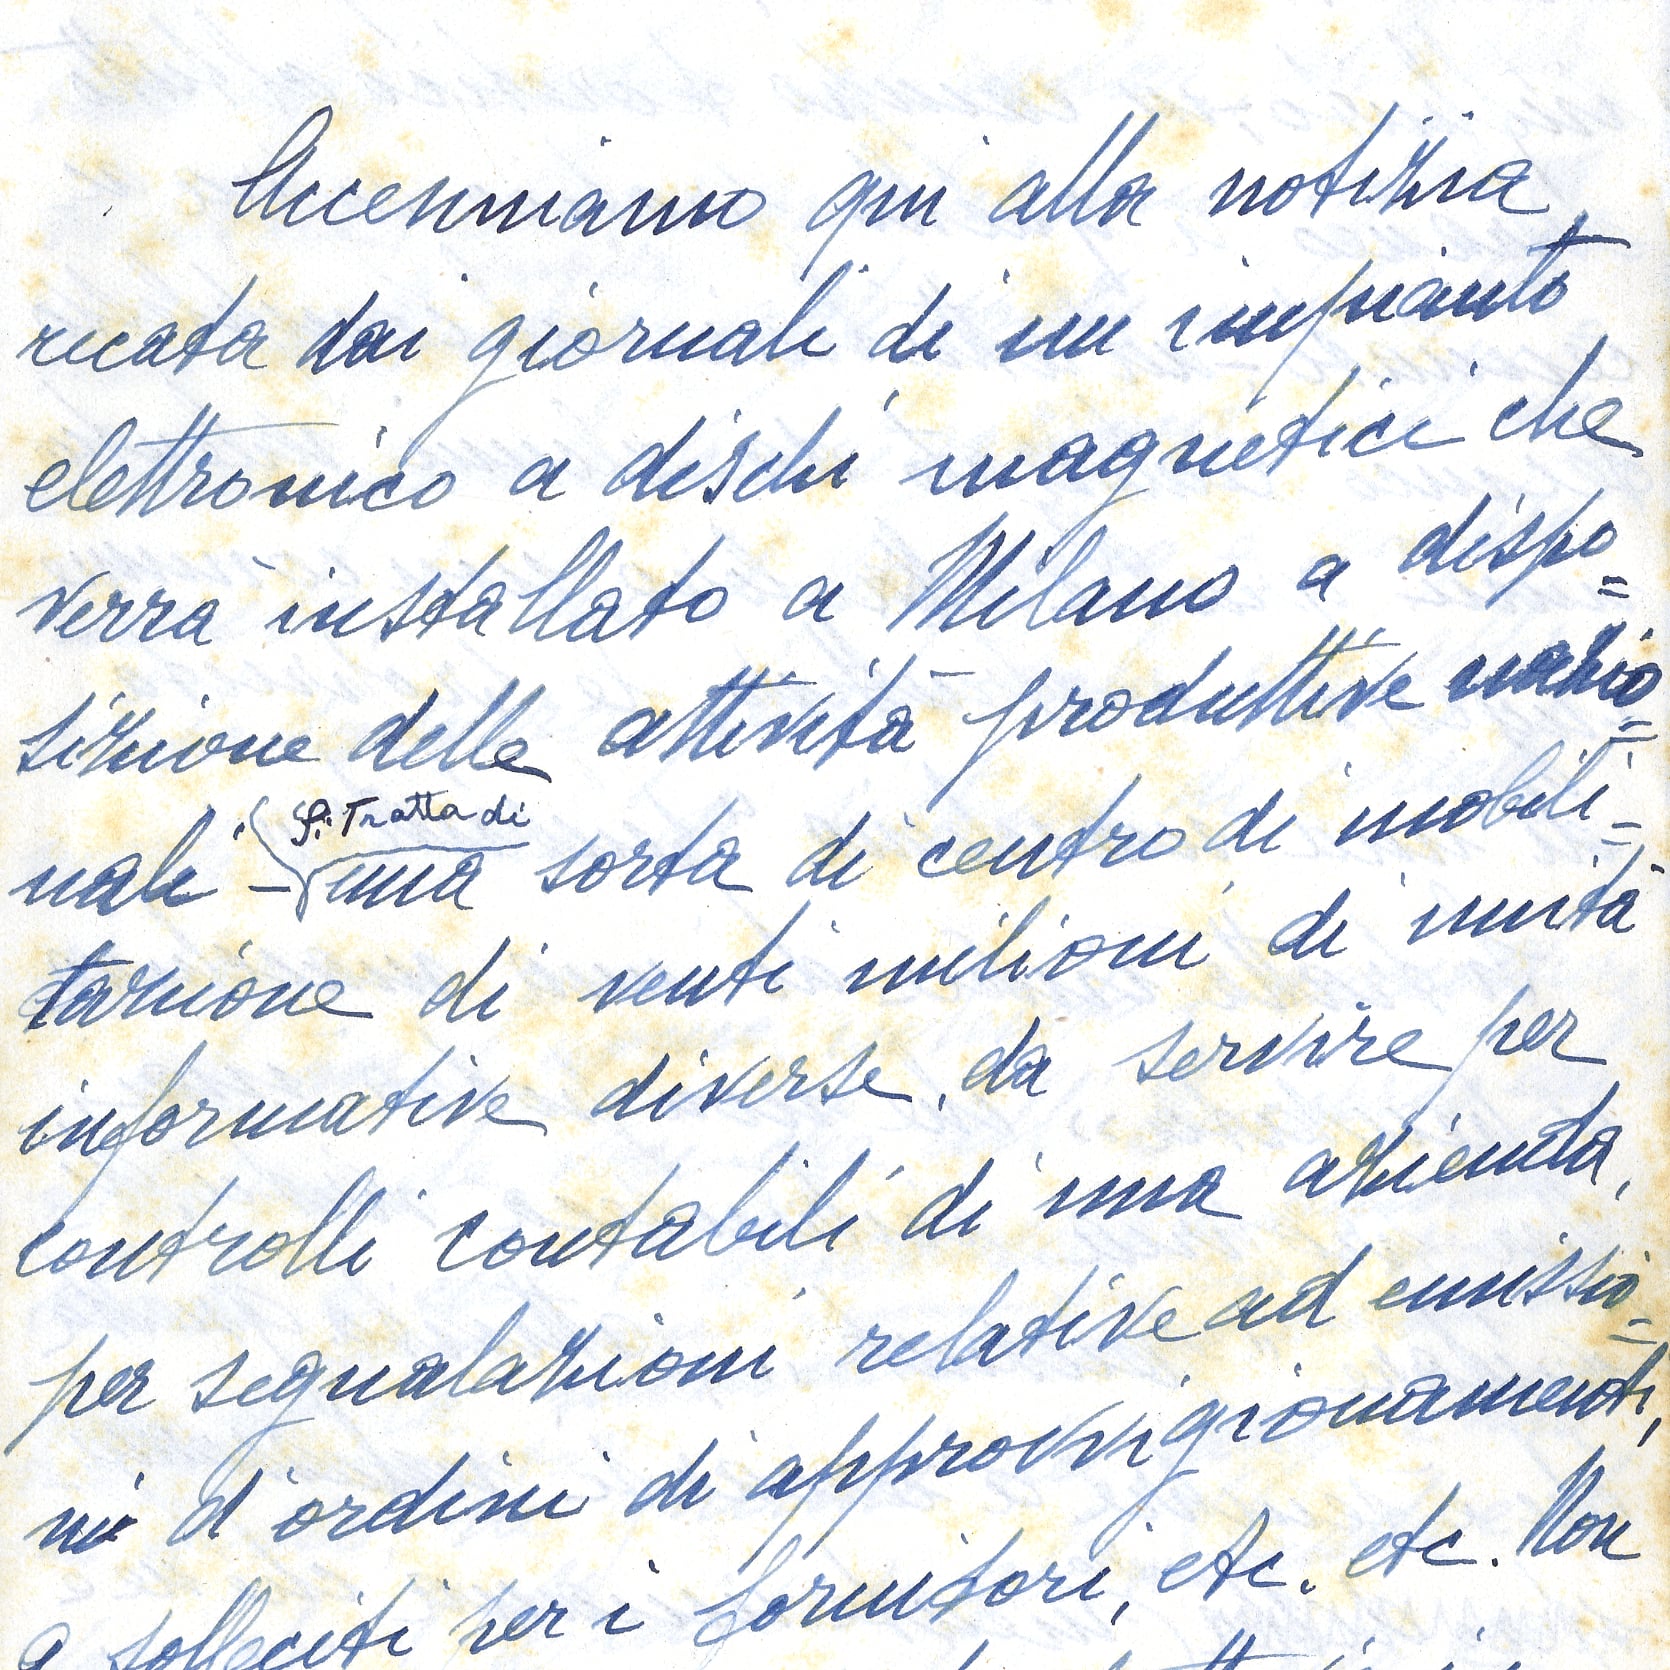 Accenniamo qui alla notizia
recata dai giornali di un impianto
elettronico a dischi magnetici che
verrà installato a Milano a dispo=
sizione delle attività produttive nazio=
nali. – Si tratta di una sorta di centro di mobili=
tazione di venti milioni di unità
informative diverse, da servire per
controlli contabili di una azienda,
per segnalazioni relative ad emissio=
ni d'ordini di approvvigionamenti,
a solleciti per i fornitori, etc. etc. Non